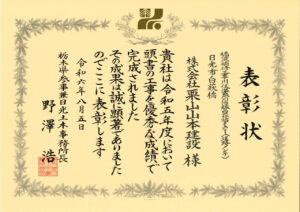 表彰状
日光市白萩橋
株式会社栗山本建設 様
貴社は令和五年度において
頭書の工事を優秀な成績で
完成されました
その成果は誠に顕著でありました
のでここに表彰します
令和六年八月五日
栃木県参事兼日光土木事務所長
野澤 浩